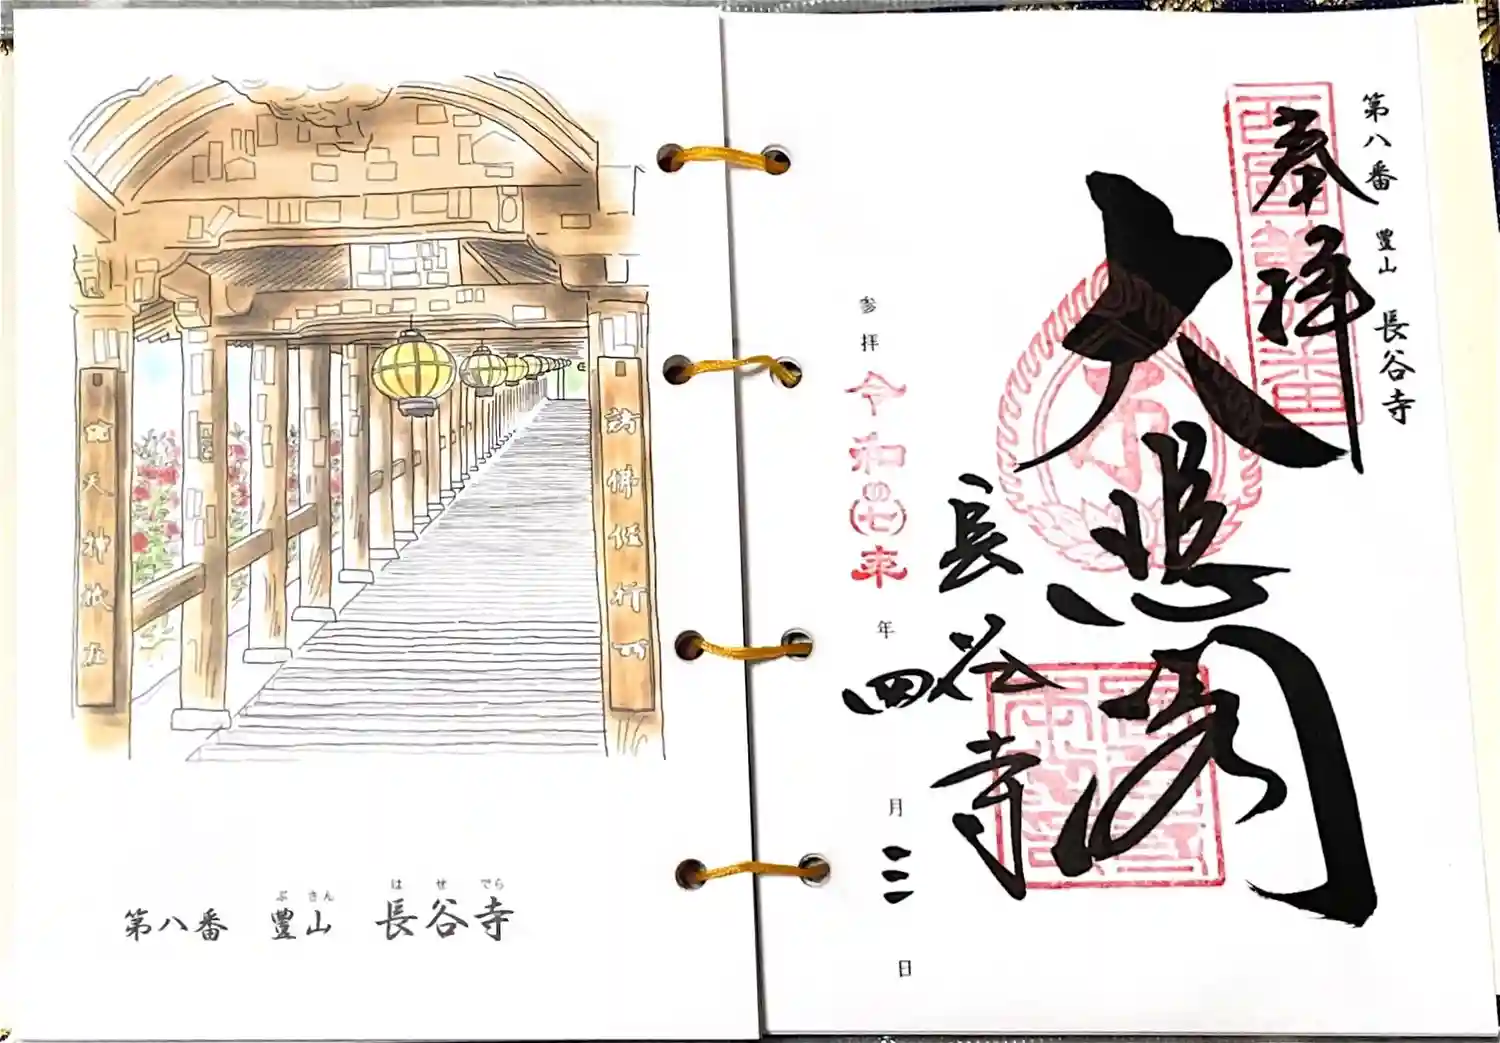 第八番 豊山 長谷寺
奉拝
西國第八番
大悲閣
長谷寺
参拝 令和七年 四月三日
天神祇
佛
第八番 豊山 長谷寺
ぶさん はせでら